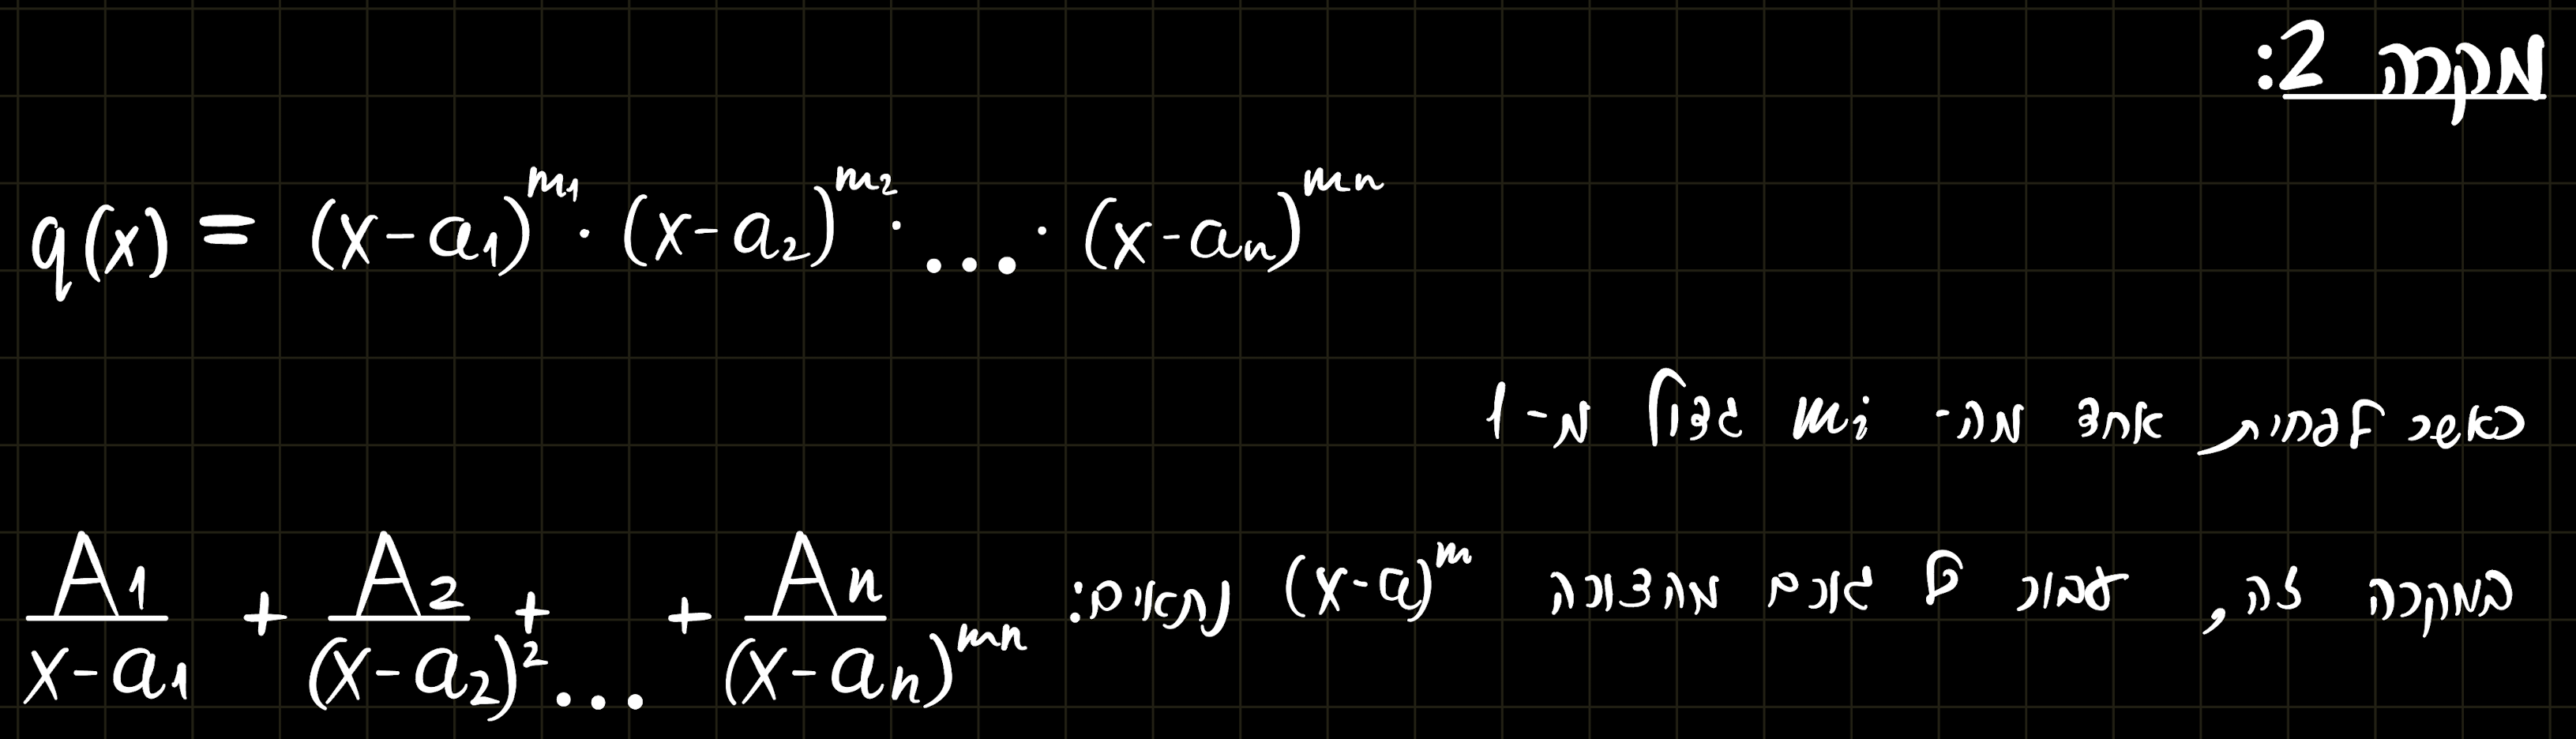 מקרה 2:
q(x) = (x-a₁)^m₁ · (x-a₂)^m₂ · ... · (x-aₙ)^mₙ
כאשר לפחות אחד מה- mᵢ גדול מ-1
במקרה זה, עבור כל גורם מהצורה (x-a)^m נתאים: A₁/(x-a₁) + A₂/(x-a₂)² + ... + Aₙ/(x-aₙ)^mₙ